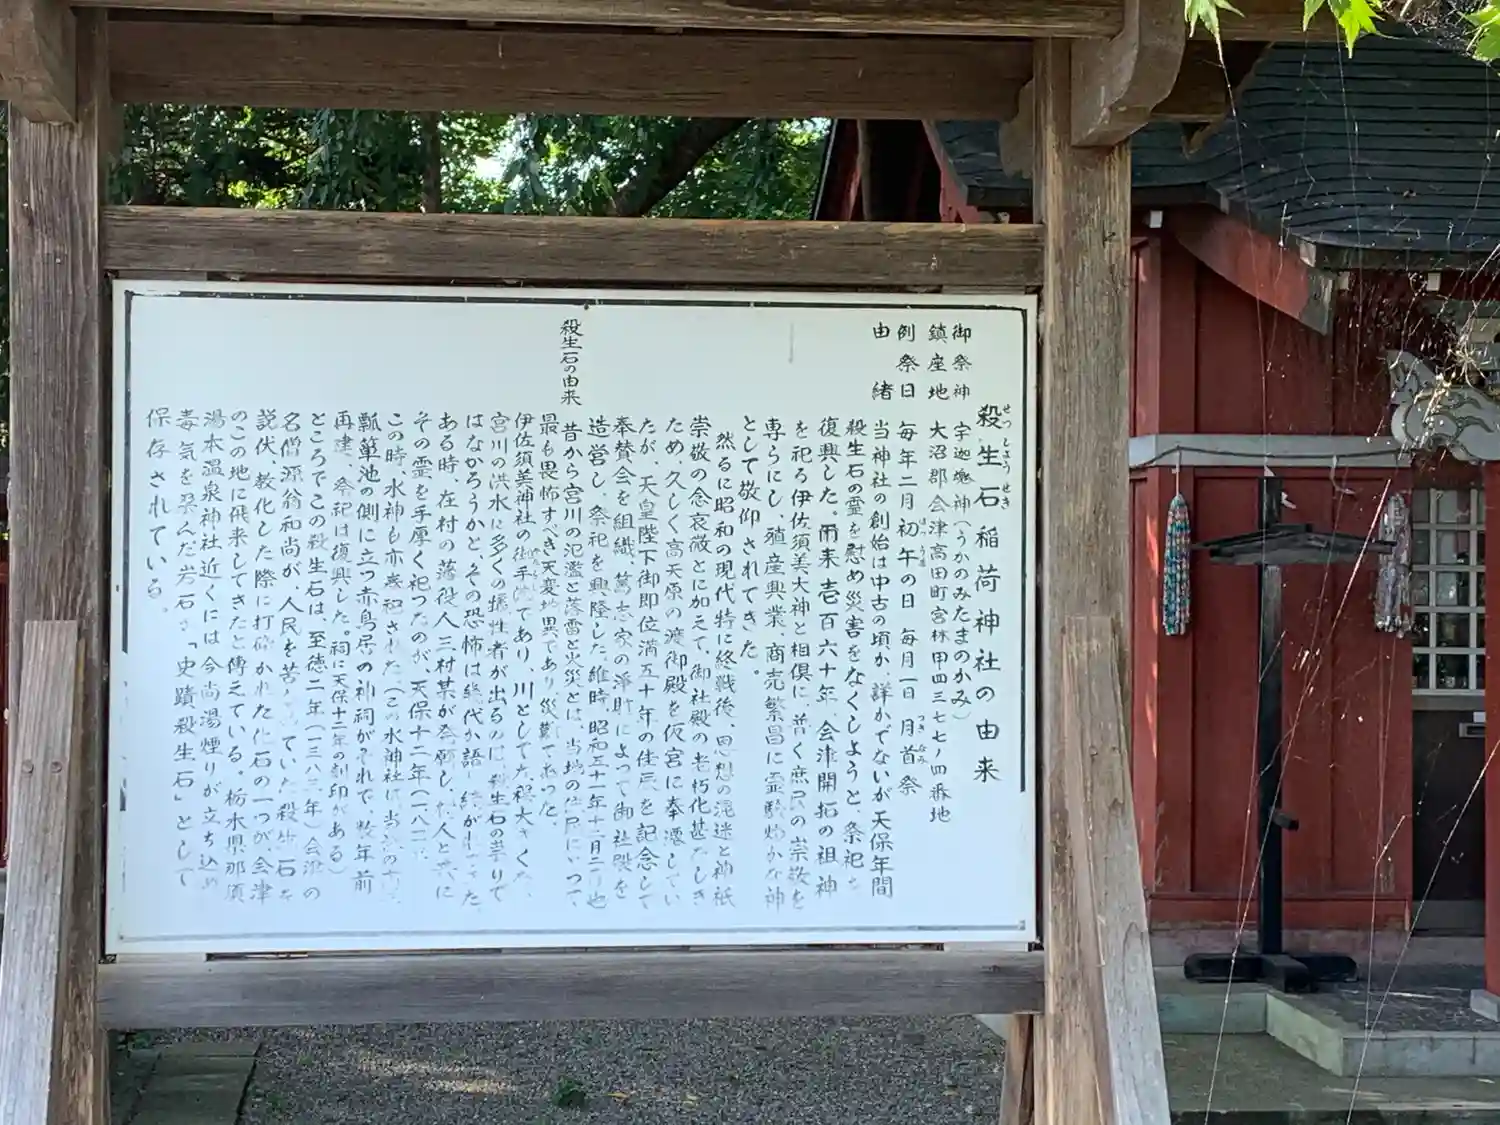 殺生石稲荷神社の由来
せっしょうせき
御祭神 宇迦魂神(うかのみたまのかみ)
鎮座地 大沼郡会津高田町宮林甲四三七七ノ四番地
例祭日 毎年二月初午の日 毎月一日 月首祭
はつうま
つきなみ
由緒 当神社の創始は中古の頃か、詳かでないが天保年間
殺生石の霊を慰め災害をなくしようと、祭祀を
復興した。爾来壱百六十年、会津開拓の祖神
を祀る伊佐須美大神と相俱に、普く庶民の崇敬を
専らにし、殖産興業、商売繁昌に霊験灼かな神
として敬仰されてきた。
然るに昭和の現代特に終戦後、思想の混迷と神祇
崇敬の念衰微とに加えて、御社殿の老朽化甚だしき
ため、久しく高天原の渡御殿を仮宮に奉遷してい
たが、天皇陛下御即位満五十年の佳辰を記念して
奉賛会を組織、篤志家の浄財によって御社殿を
造営し、祭祀を興隆した。維時、昭和五十一年十二月二 也
殺生石の由来 昔から宮川の氾濫と落雷と火災とは、当地の住民にいって
最も畏怖すべき天変地異であり災難であった。
伊佐須美神社の御手洗であり、川としても程大きくない
宮川の洪水に多くの犠牲者が出るのは、殺生石の祟りで
はなかろうかと、その恐怖は幾代か語り継がれてきた。
ある時、在村の落役人三村某が発願し、 人と共に
その霊を手厚く祀ったのが、天保十二年(一八
この時、水神も亦奉祀された(この水神社は当 の
瓢箪池の側に立つ赤鳥居の神祠がそれで数年前
再建、祭祀は復興した。祠に天保十二年の刻印がある)
ところでこの殺生石は、至徳二年(一三八 年)会津の
名僧源翁和尚が、人民を苦しめていた殺生石を
説伏、教化した際に打砕かれた化石の一つが会津
のこの地に飛来してきたと傳えている。栃木県那須
湯本温泉神社近くには今尚湯煙りが立ち込め
毒気を孕んだ岩石を「史蹟殺生石」として
保存されている。